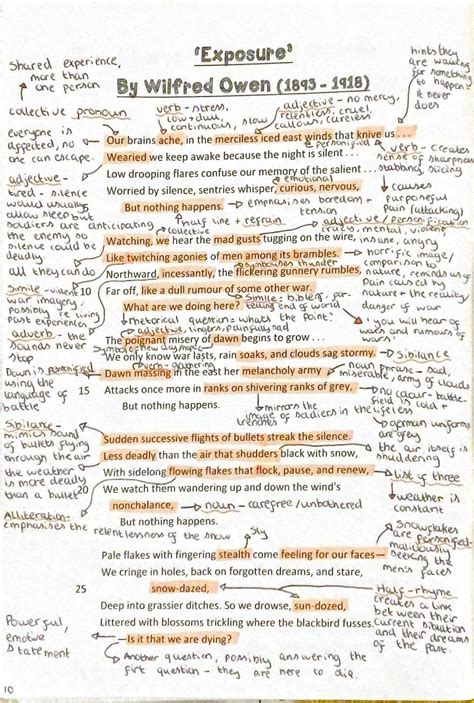 'Exposure'
By Wilfred Owen (1893 - 1918)
Shared experience,
more than
one person
hints they
are waiting
for something
to happen
it never
does
collective pronoun
verb - stress,
low + dull,
continuous, slow
adjective - no mercy,
relentless, cruel,
callous, careless
personified
everyone is
affected, no
one can escape.
Our brains ache, in the merciless iced east winds that knive us...
Wearied we keep awake because the night is silent...
Low drooping flares confuse our memory of the salient...
Worried by silence, sentries whisper, curious, nervous,
But nothing happens.
verb - creates
sense of sharpness
stabbing, slicing
causes
purposeful
pain (attacking)
emotional
emphasises boredom +
tension
half line + refrain
adjective -
tired - silence
would usually
allow sleep but
soldiers are anticipating
the enemy so
silence could be
deadly.
all they can do
collective
adjective / personification
crazy, mental, violent,
insane, angry
Watching, we hear the mad gusts tugging on the wire,
Like twitching agonies of men among its brambles.
Northward, incessantly, the flickering gunnery rumbles,
Far off, like a dull rumour of some other war.
What are we doing here?
horrific image /
comparison to
nature, reminds us of
pain caused by
nature + the reality /
danger of war
symbolises thunder
Simile - violent
war imagery
possibly re living
past experiences
10
Simile - biblical - far
telling end of world
rhetorical question - whats the point?
adjective, lingers, painfully sad
you will hear of
wars and rumours of
wars
adverb - the
sounds never
stop
The poignant misery of dawn begins to grow...
symbol of new day / hope
We only know war lasts, rain soaks, and clouds sag stormy.
Sibilance
verb - gathering
Dawn massing in the east her melancholy army
Attacks once more in ranks on shivering ranks of grey,
But nothing happens.
Dawn is personified
using the
language of
battle
15
noun phrase - sad,
miserable, army of clouds
field is cold +
lifeless
mirrors the
image of soldiers in the
trenches
german uniforms
are grey
Sibilance -
mimics sound
of bullets flying
through the air
the weather
is more deadly
than a bullet
Sudden successive flights of bullets streak the silence.
Less deadly than the air that shudders black with snow,
With sidelong flowing flakes that flock, pause, and renew,
We watch them wandering up and down the wind's
nonchalance,
But nothing happens.
20
the air itself is
shuddering
list of three
weather is
constant
noun - carefree / unbothered
Alliteration -
emphasises the relentlessness of the snow
sly
Snowflakes
are personified -
maliciously
seeking the
men's faces
Pale flakes with fingering stealth come feeling for our faces—
We cringe in holes, back on forgotten dreams, and stare,
snow-dazed,
Deep into grassier ditches. So we drowse, sun-dozed,
Littered with blossoms trickling where the blackbird fusses.
—Is it that we are dying?
25
Half-rhyme
creates a link
between their
current situation
and their dreams
of the past.
Powerful,
emotive
statement
Another question, possibly answering the
first question - they are here to die.
10